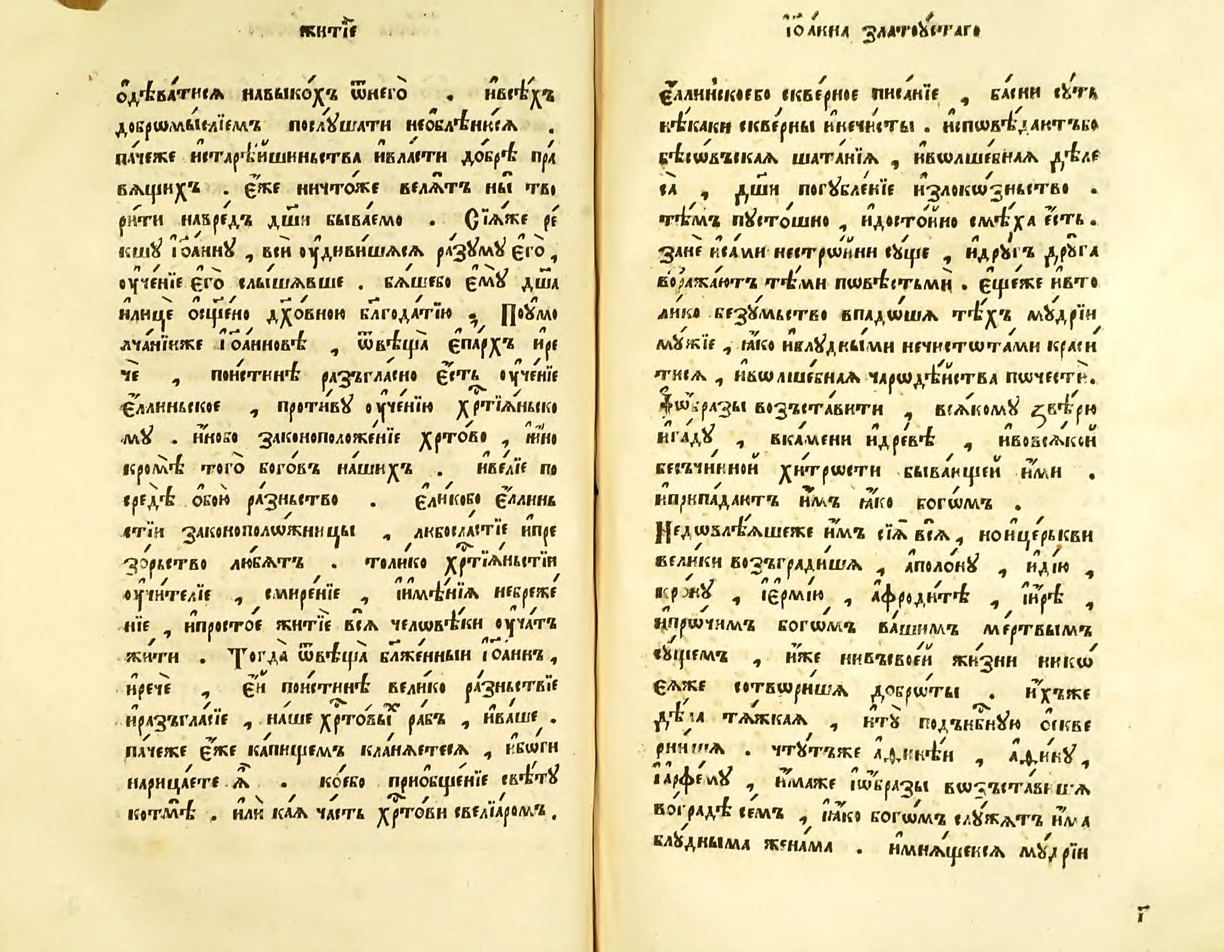 житїе
одѣва́тисѧ навыко́хъ ѿнего̀ . ивсѣ́хъ
добрѡмы́слїемъ послꙋ́шати необлѣни́сѧ .
па́чеже истарѣ́йшиньства ивла́сти до́брѣ пра
вѧщихъ . є҆́же ничто́же велѧ́тъ ны̀ тво
ри́ти навре́дъ дш҃и быва́емо . Сїѧ́же ре́
кшꙋ і҆ѡа́ннꙋ , всѝ ᲂу҆диви́шасѧ ра́зꙋмꙋ є҆гѡ̀ ,
ᲂу҆че́нїе є҆го̀ слы́шѧвше . бѧ́шебо є҆мꙋ̀ дш҃а
и́лище ѡ҆сщ҃е́но дх҃о́вною блг҃ода́тїю . Поꙋмо
лча́нїиже і҆ѡа́нновѣ , ѿвѣща̀ є҆па́рхъ ире
чѐ , пои́стинѣ разъгла́сно є҆́сть ᲂу҆че́нїе
є҆́ллиньское , проти́вꙋ ᲂу҆че́нїю хрⷭ҇тїѧ́ньско
мꙋ . и҆́нобо законоположе́нїе хрⷭ҇то́во , и҆и́но
кромѣ̀ того̀ бого́въ на́шихъ . иве́лїе по
средѣ̀ ѻ҆бою̀ ра́зньство . є҆ли́кобо є҆́ллинь
стїи законополо́жницы , любосла́стїе и҆пре
зо́рьство лю́бѧтъ . толи́ко хрⷭ҇тїѧ́ньстїи
ᲂу҆чи́телїе , смире́нїе , и҆имѣ́нїѧ небреже́
нїе , и҆просто́е житїѐ всѧ̀ человѣ́ки ᲂу҆́чатъ
жи́ти . Тогда̀ ѿвѣща̀ бл҃же́нныи і҆ѡа́ннъ ,
и҆речѐ , є҆́й пои́стинѣ вели́ко ра́зньствїе
и҆разъгла́сїе , на́ше хрⷭ҇то́выⷯ ра́бъ , и҆ва́ше .
па́чеже є҆́же ка́пищемъ кла́нѧетесѧ , и҆бо́ги
нарица́ете ѧ҆̀ . ко́ебо приѻбще́нїе свѣ́тꙋ
котмѣ̀ . и҆лѝ ка́ѧ ча́сть хрⷭ҇то́ви свелїа́ромъ .
і҆ѡа́нна златоꙋ́стаго
є҆́ллинскоебо скве́рное писа́нїе , ба́сни сꙋ́ть
нѣ́каки скве́рны и҆нечи́сты . и҆сповѣ́даютъбо
бѣсѡ́вьскаѧ шата́нїѧ , и҆вѡлше́бнаѧ дѣле
са̀ , дш҃и погꙋбле́нїе и҆злокѡ́зньство .
тѣ́мъ пꙋсто́шно , и҆досто́йно смѣ́ха є҆́сть .
занѐ и҆са́ми нестрѡ́йни сꙋ́ще , и҆дрꙋ́гъ дрꙋ́га
воража́ютъ тѣ́ми пѡ́вѣстьми . є҆ще́же и҆вто
ли́ко безꙋ́мьство впадѡ́шѧ тѣ́хъ мꙋ́дрїи
мꙋ́жїе , ꙗ҆́ко и҆влꙋ́дными нечистѡта́ми краси
тисѧ , и҆вѡлше́бнаѧ чарѡдѣ́йства пѡче́сти̂ .
и҆ѡ́бразы возъста́вити , всѧ́комꙋ звѣ́рю
и҆га́дꙋ , вка́мени и҆дре́вѣ , и҆вовсѧ́кой
бесчи́нной хи́трости быва́ющей и҆́ми .
и҆припа́даютъ и҆́мъ ꙗ҆́ко богѡ́мъ .
Недѡвлѣ́ѧшеже и҆́мъ сїѧ̑ всѧ̀ , но и҆це́рькви
вели́ки возъгради́шѧ , а҆поло́нꙋ , и҆ді́ю ,
кро́нꙋ , і҆е҆рмі́ю , а҆фроди́тѣ , и҆и́рѣ ,
и҆про́чимъ богѡ́мъ ва́шимъ ме́ртвымъ
сꙋ́щемъ , и҆́же нивъсвое́й жи́зни никѡ
є҆ѧ́же сотвори́шѧ добрѡ́ты . и҆́хъже
дѣла̀ тѧ́жкаѧ , и҆тꙋ̀ подънбнꙋю ѡскве
рни́шѧ . чтꙋ́тъже а҆ѳи́нѣи , а҆ѳи́нꙋ ,
і҆арѳе́мꙋ , и҆́маже і҆ѡ́бразы вѡзъста́вишѧ
вогра́дѣ се́мъ , ꙗ҆́ко богѡ́мъ слꙋ́жатъ и҆́ма
блꙋ́дныма жена́ма . и҆мнѧ́щеисѧ мꙋ́дрїи
г҃